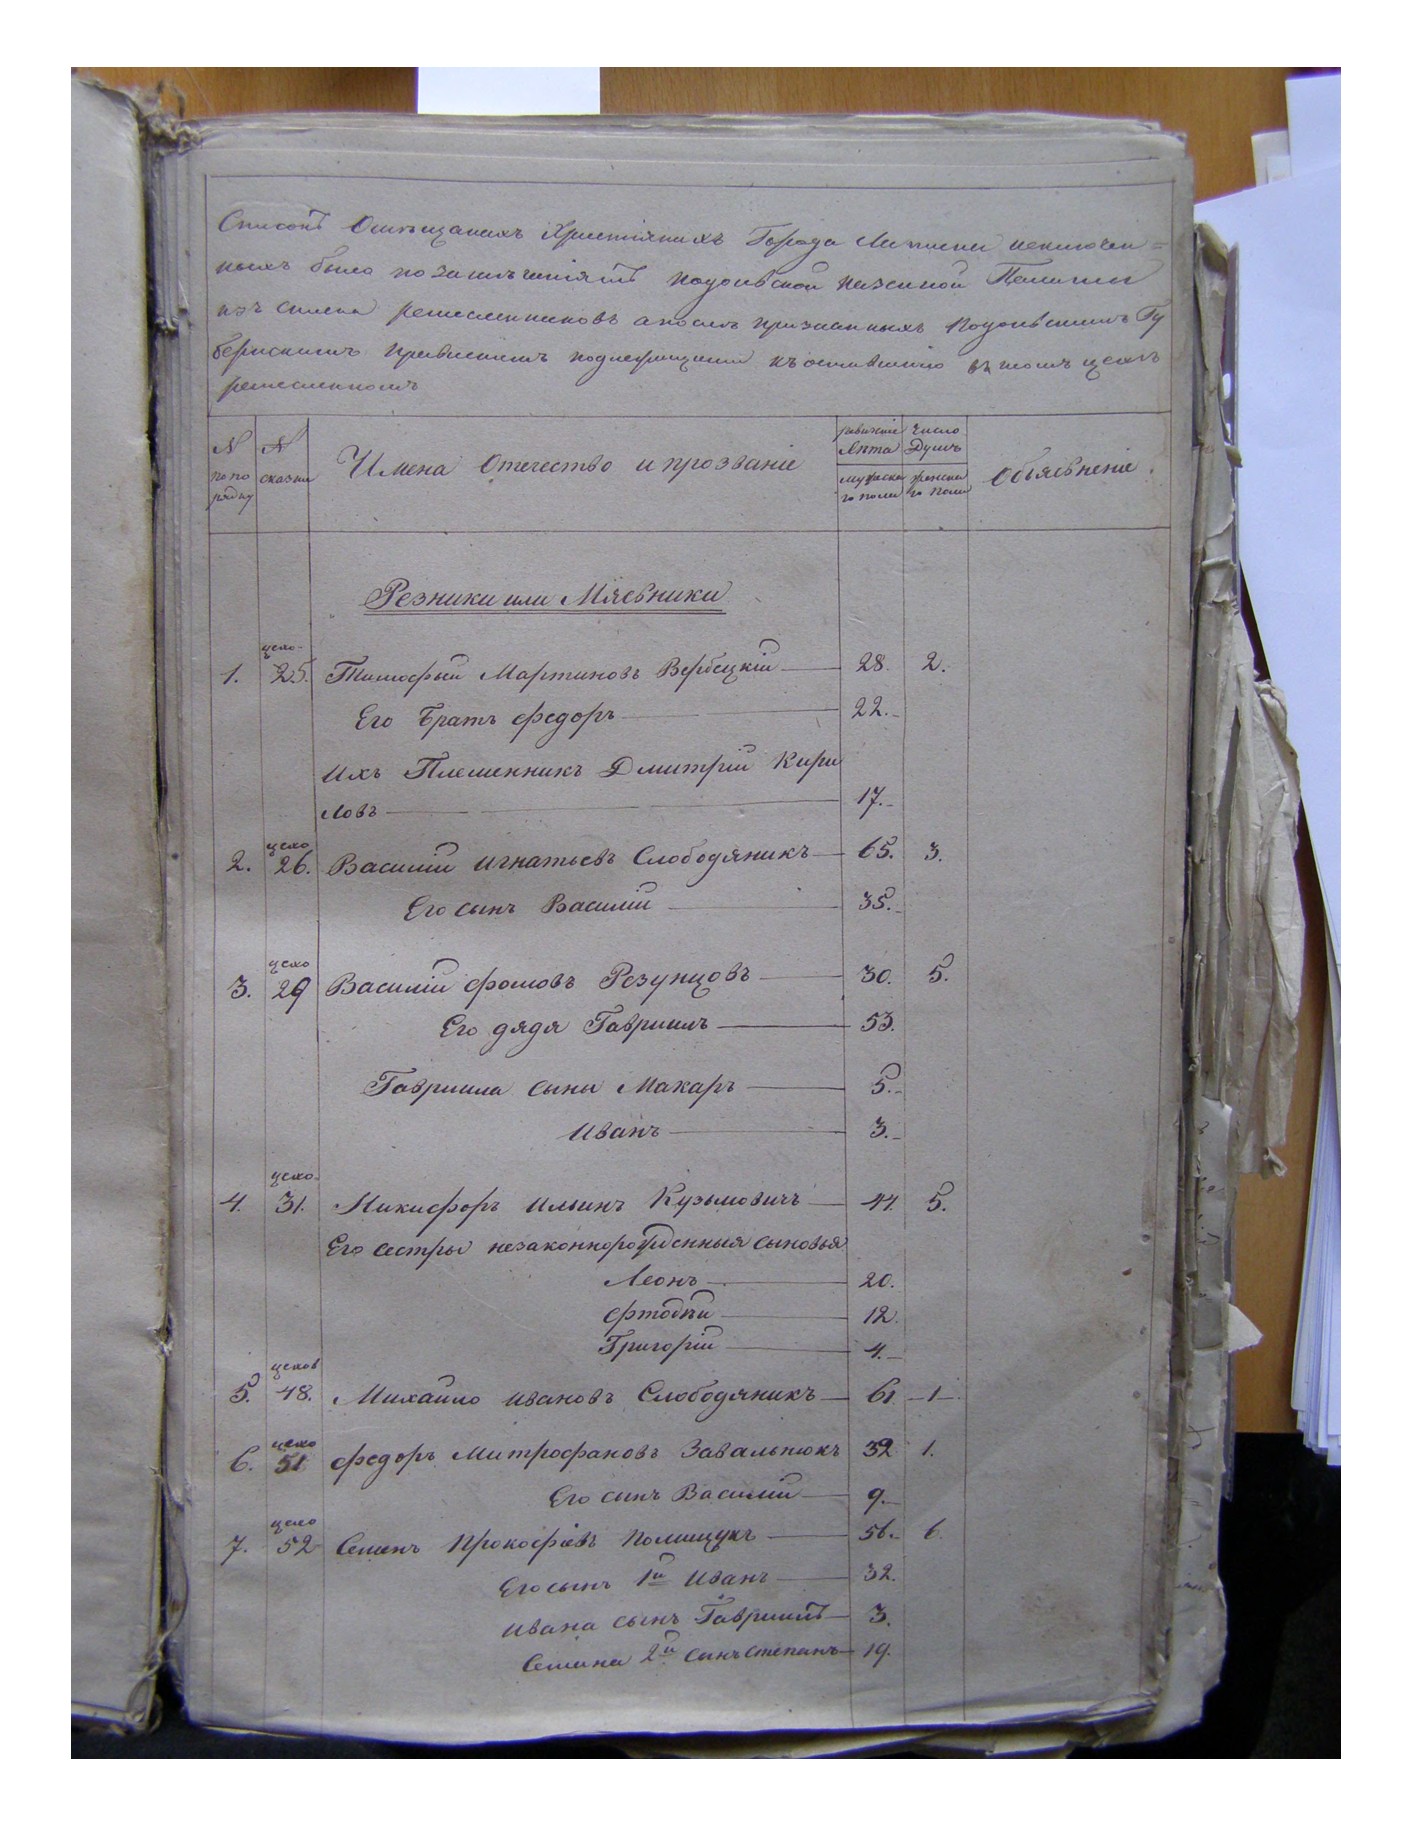 Списокъ Омѣщанахъ Христіянахъ Города Литина исключен=
ныхъ было по замѣчаніямъ Подольской Казенной Палаты
изъ списка ремесленниковъ а посемъ признанныхъ Подольскимъ Гу
бернскимъ Правленіемъ подлежащими къ оставленію въ томъ цехѣ
ремесленномъ
N по по рядку
N сказки
Имена Отечество и прозваніе
Лѣта мужеска го пола
число Душъ женска го пола
Объясьненіе
Резники или Мясьники
1. цехо 25. Тимофѣй Мартиновъ Вербецкій 28. 2.
Его Братъ Федоръ 22.
Ихъ Племенникъ Дмитрій Кири
ловъ 17.
2. цехо 26. Василій Игнатьевъ Слободяникъ 65. 3.
Его сынъ Василій 35.
3. цехо 29 Василій Фомовъ Резунцовъ 30. 5.
Его дядя Гавриилъ 53.
Гавриила сыны Макаръ 5.
Иванъ 3.
4. цехо 31. Никифоръ Ильинъ Кузьмовичъ 44. 5.
Его сестры незаконнорожденныя сыновья
Леонъ 20.
12.
Григорій 4.
5. цехов 48. Михайло Ивановъ Слободяникъ 61 1
6. цехо 51 Федоръ Митрофановъ Завальнюкъ 32 1.
Его сынъ Василій 9.
7. цехо 52 Семенъ Прокофіевъ Полищукъ 56. 6.
Его сынъ 1й Иванъ 32.
Ивана сынъ Гавриилъ 3.
Семена 2й сынъ Степанъ 19.